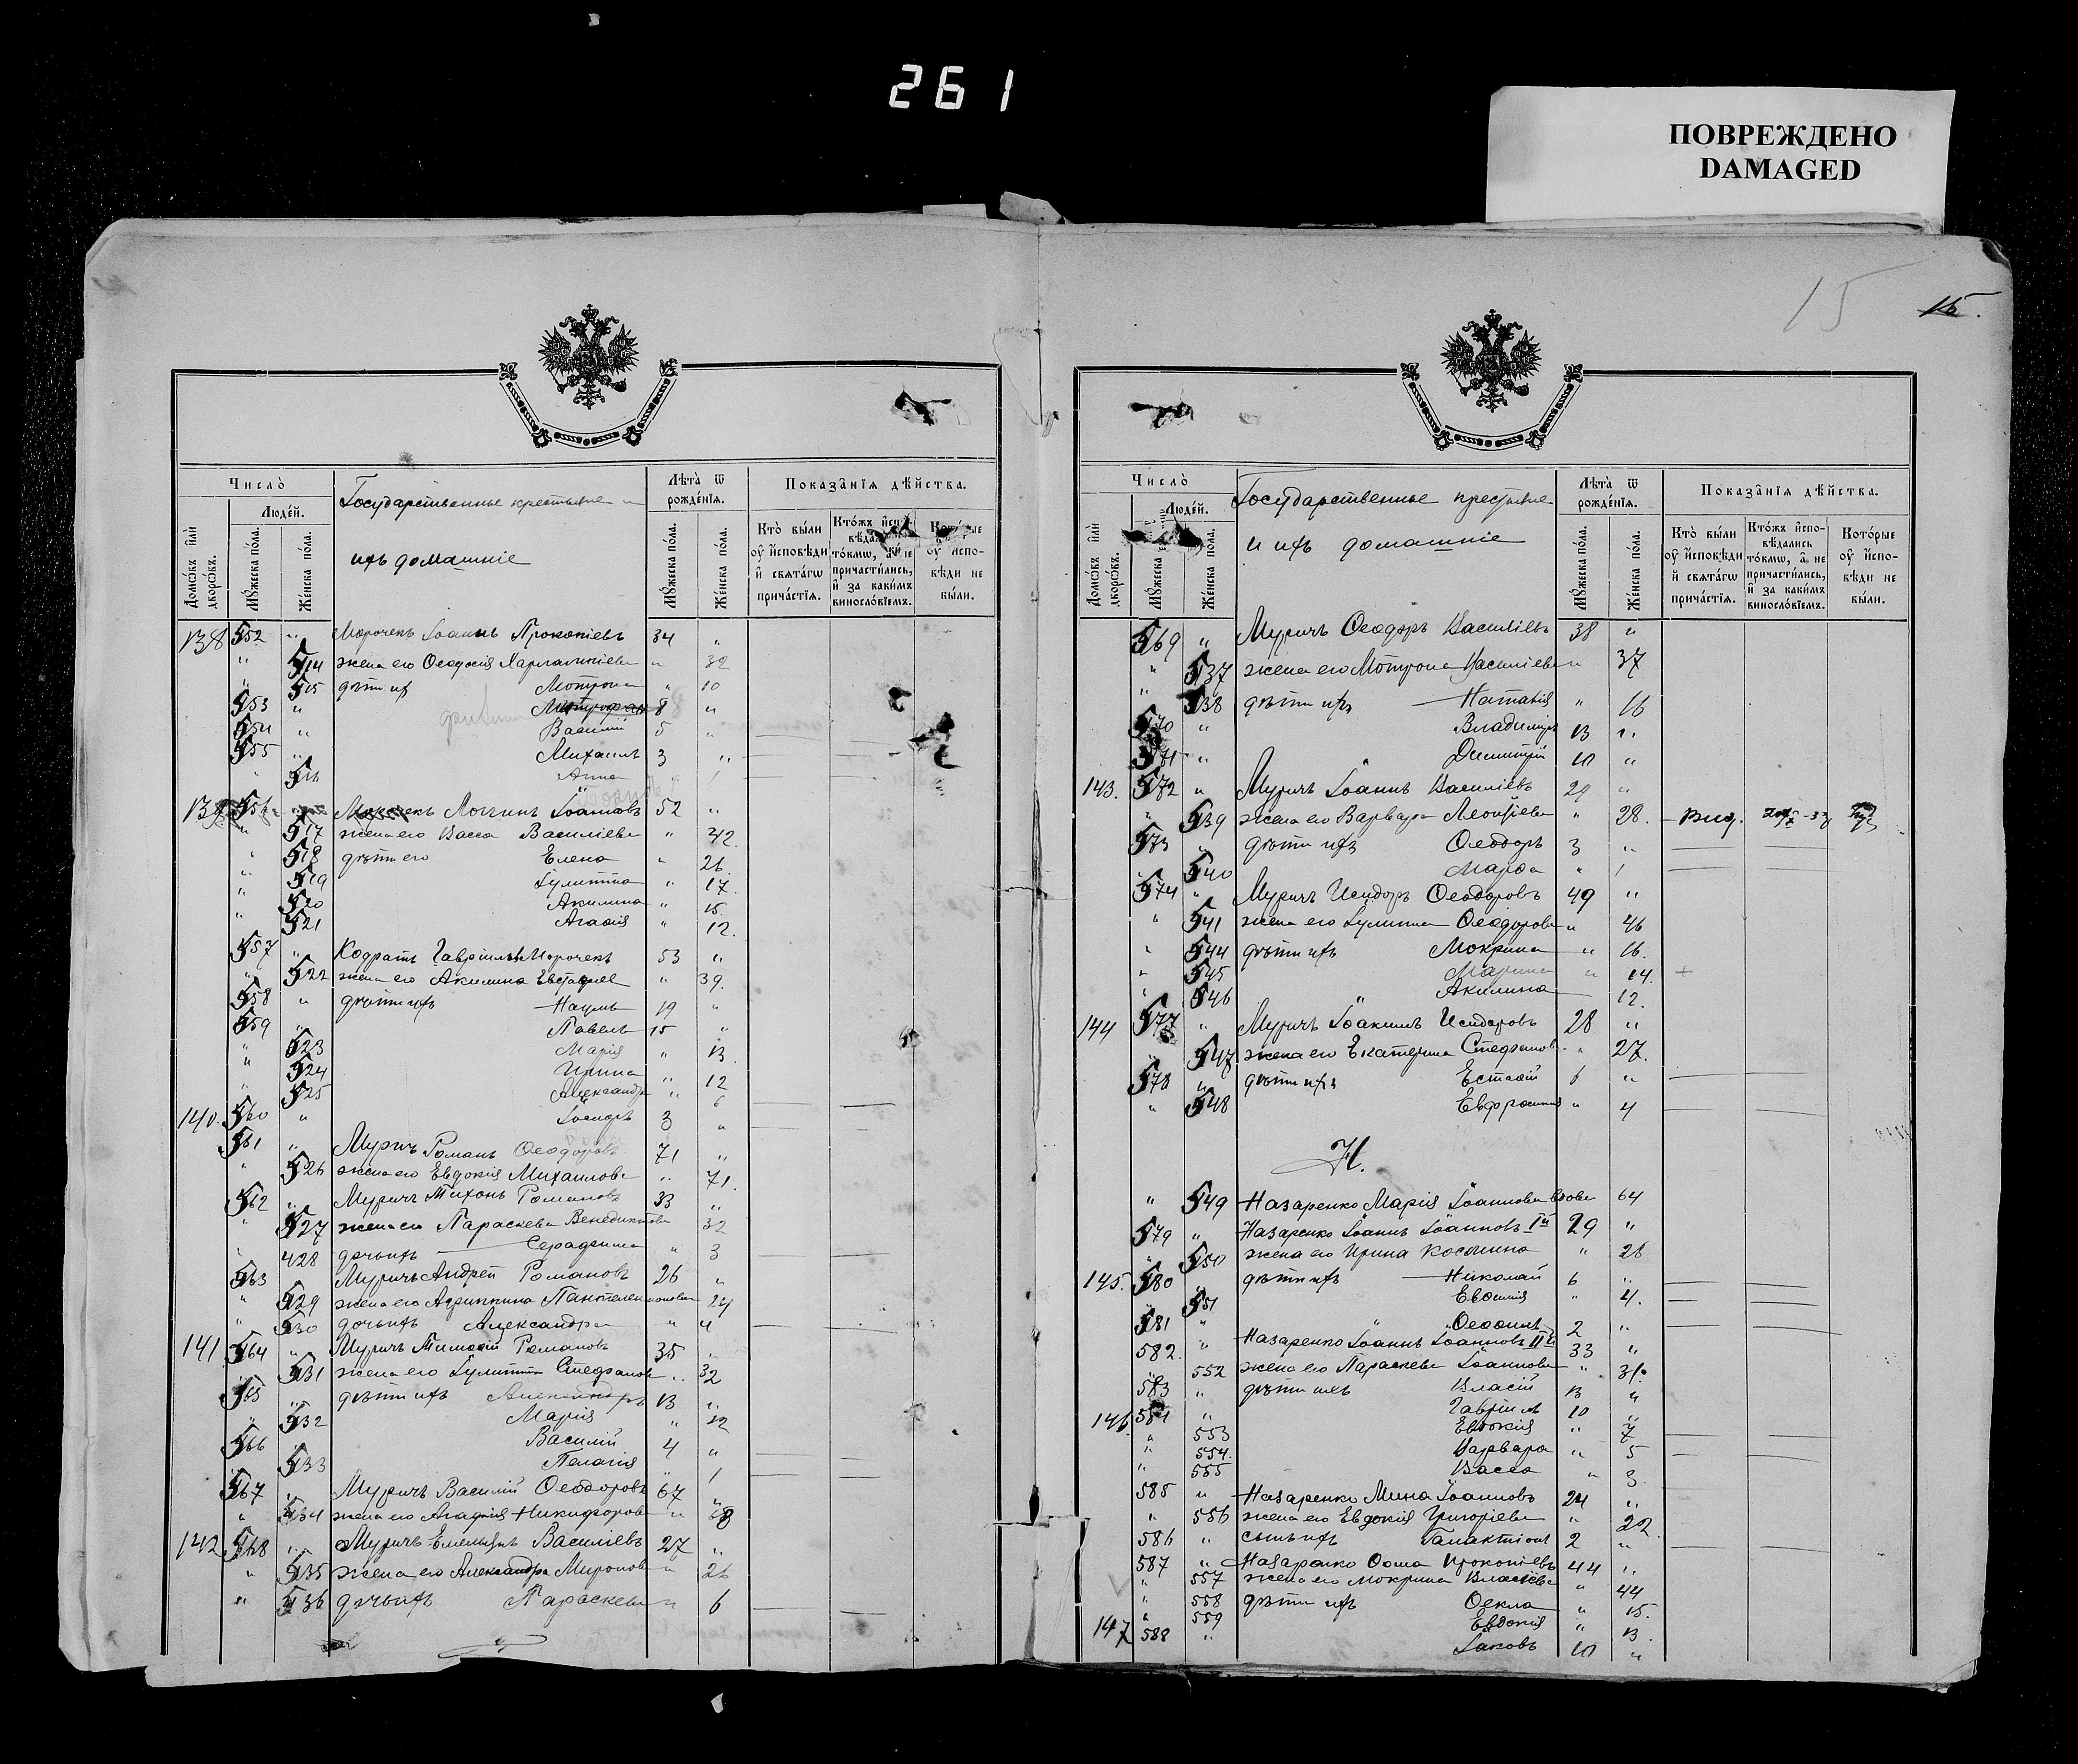 261
ПОВРЕЖДЕНО
DAMAGED
15
15.
Число̀
Людей.
Домѡвъ и҆лѝ дворѡвъ.
Мꙋжеска пола.
Женска пола.
Государственные крестьяне и
ихъ домашніе
Лѣта̀ ѿ рожденїѧ.
Мꙋжеска пола.
Женска пола.
Показанїѧ дѣйства.
Кто̀ были оу҆ и҆сповѣди и҆ свѧтагѡ причастїѧ.
Ктожъ и҆сповѣдались токмѡ, а҆ не причастились, и҆ за какимъ винословїемъ.
Которые оу҆ и҆сповѣди не были.
138 552 " Морочекъ Іоаннъ Прокопіевъ 34 "
" 514 жена его Ѳеодосія Харлампіева " 32
" 515 дѣти их Мотрона " 10
553 " Митрофан 8 "
554 " Василій 5 "
555 " Михаилъ 3 "
" 516 Анна 1
139 556 Морочекъ Логгинъ Іоанновъ 52 "
" 517 жена его Васса Василіева " 42.
" 518 дѣти его Елена " 26.
" 519 Іулитта " 17.
" 520 Акилина " 15.
" 521 Агафія " 12.
557 " Кодратъ Гавріилъ Морочекъ 53 "
" 522 жена его Акилина Евстафіев " 39.
558 " дѣти ихъ Наумъ 19 "
559 " Павелъ 15 "
" 523 Марія " 13
" 524 Ирина " 12
" 525 Александра " 6
140. 560 " Іосифъ 3 "
561 " Муричъ Романъ Ѳеодоровъ 71 "
" 526 жена его Евдокія Михаилова " 71.
562 " Муричъ Тихонъ Романовъ 33 "
" 527 жена его Параскева Венедиктова 32
" 428 дочь ихъ Серафима " 3
563 Муричъ Андрей Романовъ 26 "
" 529 жена его Агриппина Пантелеимонова 24
" 530 дочь ихъ Александра " 4
141 564 " Муричъ Тимофій Романовъ 35 "
531 жена его Іулитта Стефанов " 32
565 " дѣти ихъ Александръ 13 "
" 532 Марія " 12
566 " Василій 4 "
533 Пелагія " 1
567 " Муричъ Василій Ѳеодоровъ 67 "
" 534 жена его Агафія Никифорова " 68
142 568 " Муричъ Емельянъ Василіевъ 27 "
" 535 жена его Александра Миронова " 26
" 536 дочь ихъ Параскева " 6
Число̀
Людей.
Домѡвъ и҆лѝ дворѡвъ.
Мꙋжеска пола.
Женска пола.
Государственные крестьяне
и ихъ домашніе
Лѣта̀ ѿ рожденїѧ.
Мꙋжеска пола.
Женска пола.
Показанїѧ дѣйства.
Кто̀ были оу҆ и҆сповѣди и҆ свѧтагѡ причастїѧ.
Ктожъ и҆сповѣдались токмѡ, а҆ не причастились, и҆ за какимъ винословїемъ.
Которые оу҆ и҆сповѣди не были.
569 " Муричъ Ѳеодоръ Василіевъ 38 "
" 537 жена его Мотрона Василіева " 37
" 538 дѣти ихъ Наталія " 16
570 " Владиміръ 13 "
571 " Димитрій 10 "
143. 572 " Муричъ Іоаннъ Василіевъ 29 "
" 539 жена его Варвара Леонтіева " 28.
573 " дѣти ихъ Ѳеодоръ 3 "
" 540 Марѳа " 1
574 " Муричъ Исидоръ Ѳеодоровъ 49 "
" 541 жена его Іулитта Ѳеодорова " 46
" 544 дѣти ихъ Мокрина " 16.
" 545 Марина " 14.
" 546 Акилина 12.
144 577 " Муричъ Іоакимъ Исидоровъ 28 "
" 547 жена его Екатерина Стефанов " 27.
578 " дѣти ихъ Естафій 6 "
" 548 Евфросинія " 4
Н.
" 549 Назаренко Марія Іоаннова вдова 64
579 " Назаренко Іоаннъ Іоанновъ Iй 29 "
" 550 жена его Ирина Космина " 28
145. 580 дѣти ихъ Николай 6 "
" 551 Евфимія " 4.
581 " Ѳеофилъ 2 "
582. " Назаренко Іоаннъ Іоанновъ IIй 33 "
" 552 жена его Параскева Іоаннова " 31.
583 " дѣти ихъ Власій 13 "
146. 584 " Гавріилъ 10 "
" 553 Евдокія " 7
" 554. Варвара " 5
" 555 Васса " 3.
585 " Назаренко Мина Іоанновъ 24 "
" 556 жена его Евдокія Григоріева " 22.
586 " сынъ ихъ Галактіонъ 2 "
587 " Назаренко Ѳома Прокопіевъ 44 "
" 557 жена его Мокрина Власіева " 44
" 558 дѣти ихъ Ѳекла " 15.
" 559 Евдокія " 13.
147 588 " Іаковъ 10 "